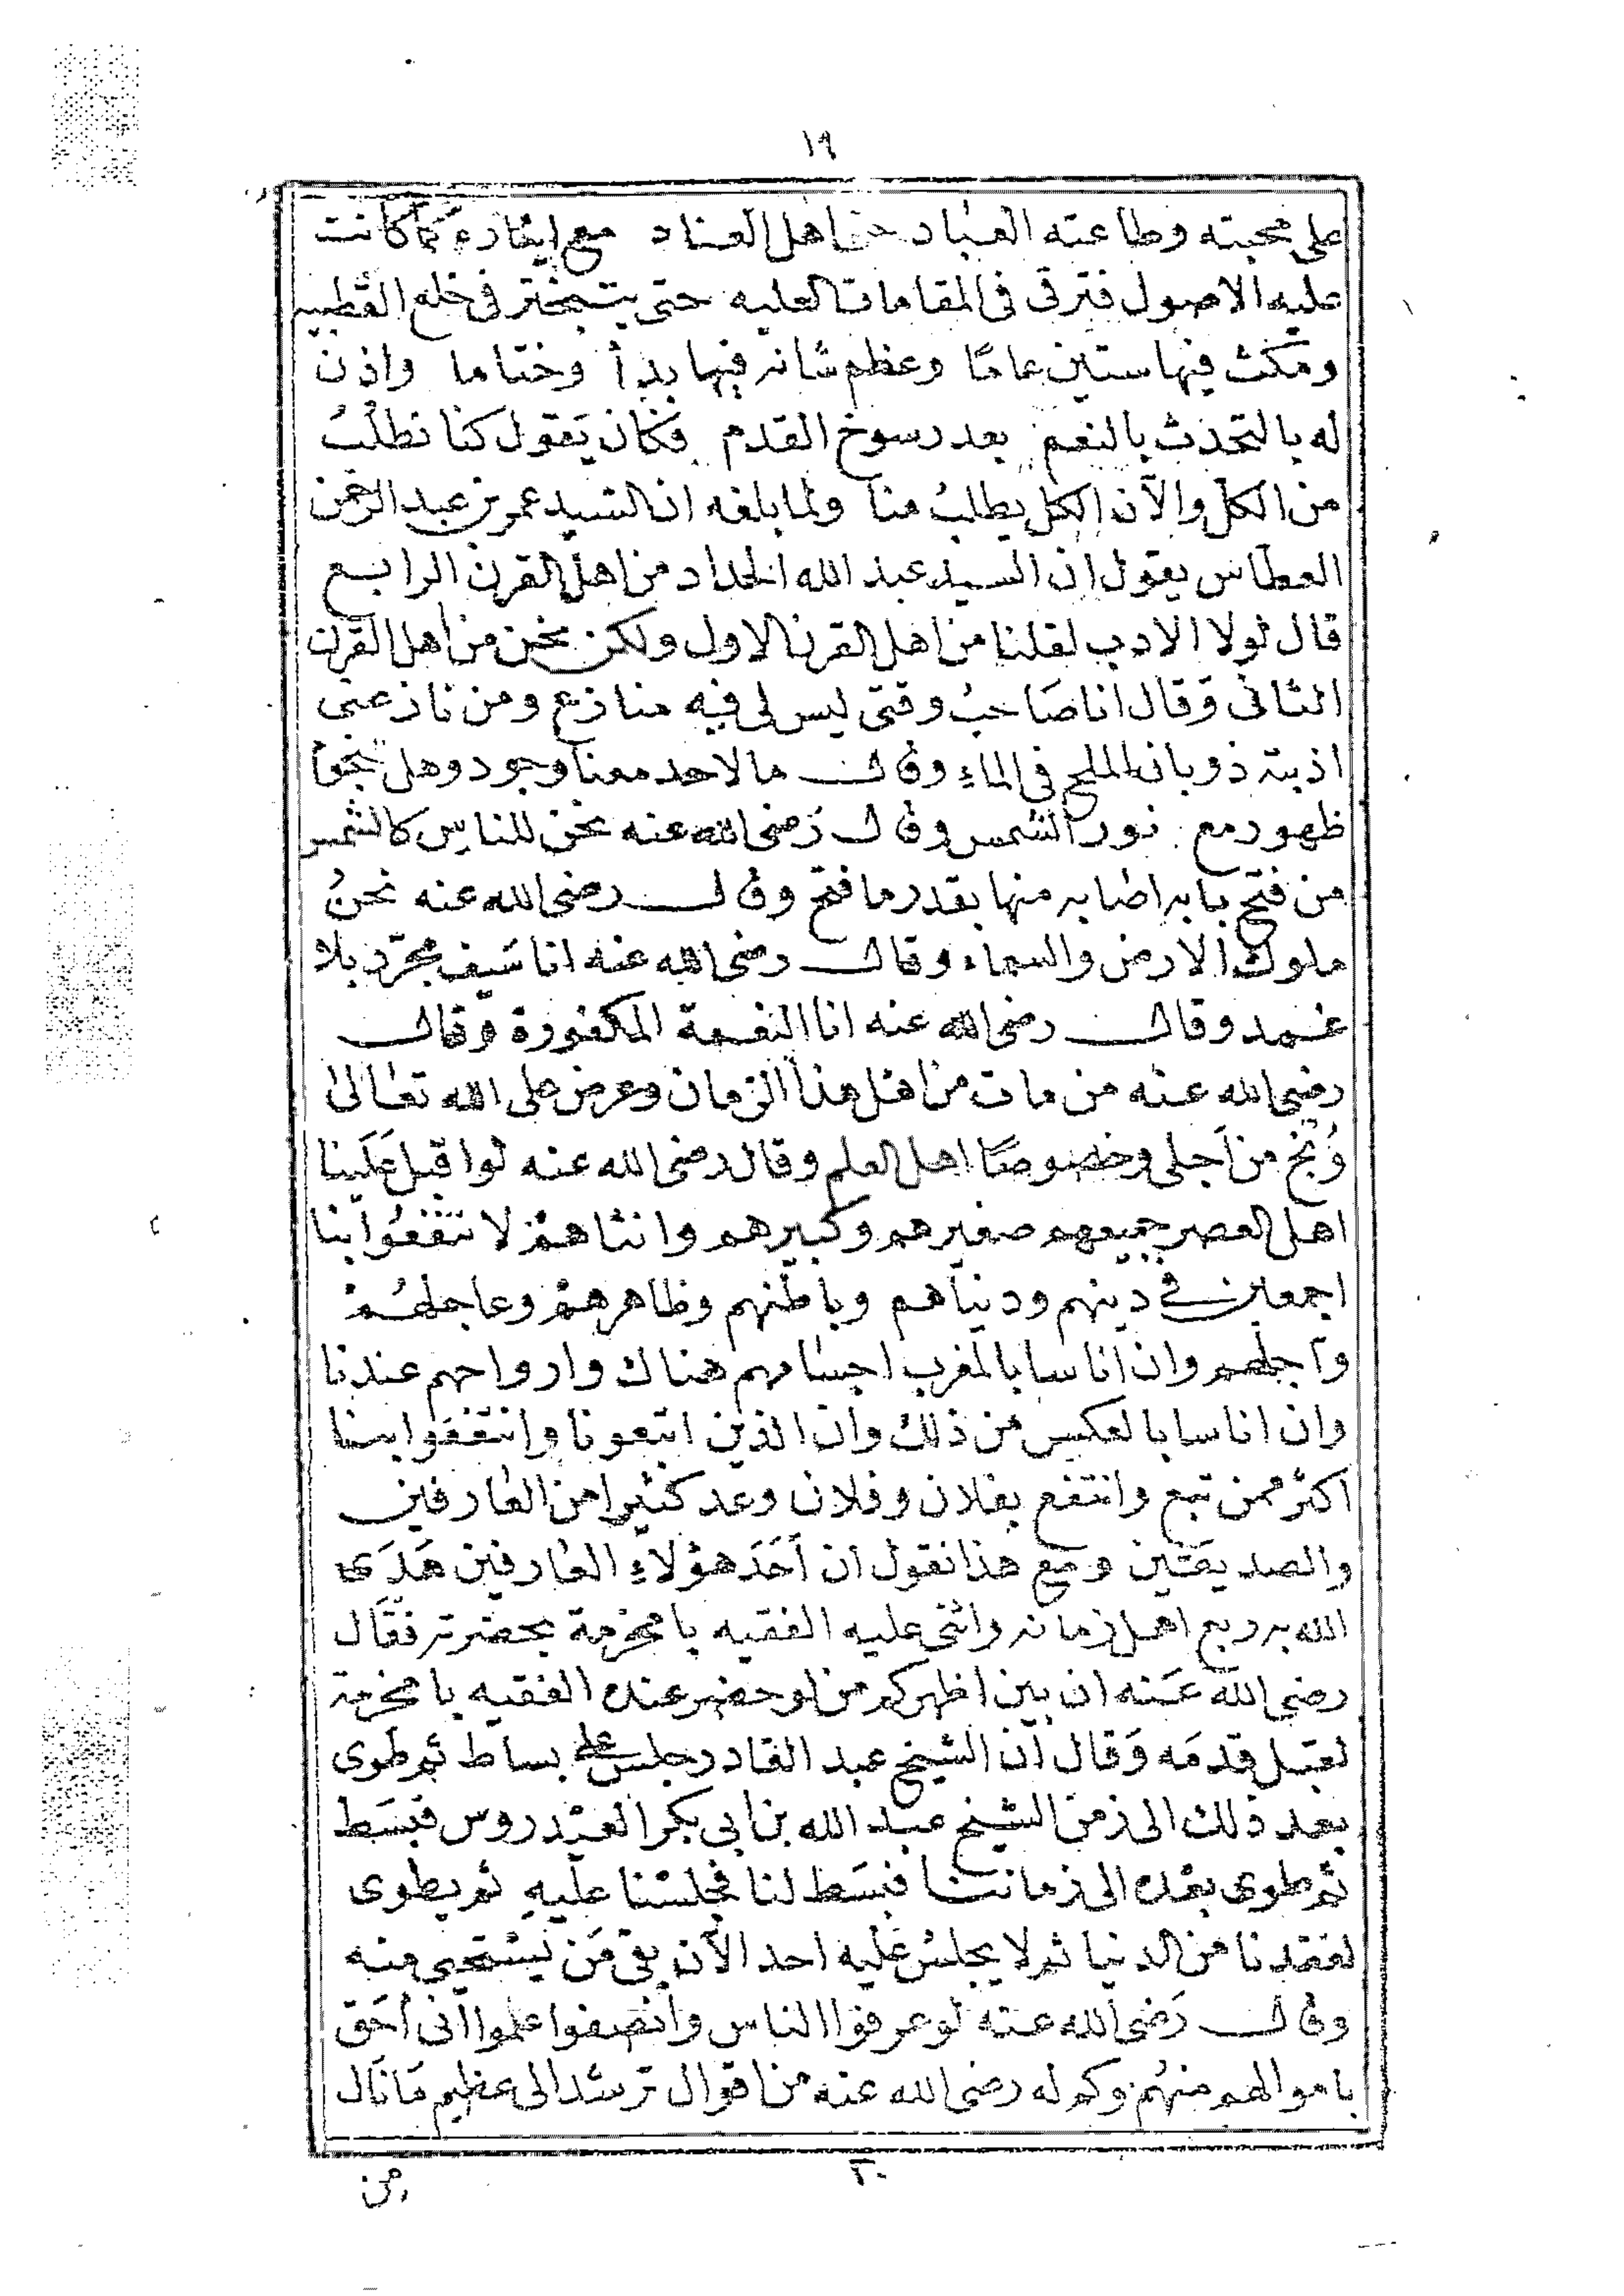 ١٩
على محبته وطاعته العباد حتى اهل العناد مع ايثاره كما كانت
عليه الاصول فترقى فى المقامات العليه حتى يتبختر فى خلع القطبيه
ومكث فيها ستين عامًا وعظم شانه فيها بدأ وختاما واذن
له بالتحدث بالنعم بعد رسوخ القدم فكان يَقول كنا نطلبُ
من الكل والآن الكل يطلبُ منا ولما بلغه ان السيد عمر بن عبد الرحمن
العطاس يقول ان السيد عبد الله الحداد من اهل القرن الرابع
قال لولا الادب لقلنا من اهل القرن الاول ولكن نحن من اهل القرن
الثانى وَقال انا صَاحبُ وقتى ليس لى فيه منازع ومن نازعنى
اذبته ذوبان الملح فى الماءِ وقال ما لاحد معنا وجود وهل للنجوم
ظهور مع نور الشمس وقال رَضى الله عنه نحن للناس كالشمس
من فتح بابه اضابه منها بقدر ما فتح وقال رضى الله عنه نحنُ
ملوك الارض والسماء وقال رضى الله عنه انا سَيف مجرّد بلا
غمد وقال رضى الله عنه انا النعمة المكفورة وَقال
رضى الله عنه من مات من اهل هذا الزمان وعرض على الله تعالى
وُبّخ من اَجلى وخصوصًا اهل العلم وقال رضى الله عنه لو اقبل عَلَينا
اهل العصر جميعهم صغيرهم وكبيرهم وانثاهمْ لانتفعُوا بنا
اجمعين فى دينهم ودنياهم وباطنهم وظاهرهمْ وعاجلهُمْ
وآجلهم وان اناسا بالمغرب اجسامهم هناك وارواحهم عندنا
وان اناسا بالعكس من ذلك وان الذين اتبعونا وانتفعوا بنا
اكثر ممن تبع وانتفع بفلان وفلان وعد كثيرا من العارفين
والصديقين ومع هذا نقول ان اَحَدَ هؤلاءِ العارفين هَدَى
الله به ربع اهل زمانه واثنى عليه الفقيه بامخرمة بحضرته فقَال
رضى الله عَنه ان بين اظهركم من لو حضر عنده الفقيه بامخرمة
لقبل قدمَه وَقال ان الشيخ عبد القادر جلس على بساط ثم طوى
بعد ذلك الى زمن الشيخ عبد الله بن ابى بكر العيْدروس فبسَط
ثم طوى بعْده الى زماننا فبسَط لنا فجلسْنا عليه ثم يطوى
لفقدنا من الدنيا ثم لا يجلسُ عليه احد الآن بقى مَن يَسْتحيى منه
وقال رَضى الله عنه لو عرفوا الناس وانصفوا علموا انى احَق
باموالهم منهُم وكم له رضى الله عنه من اقوال ترشد الى عظيم مَا نَال
٢٠
من